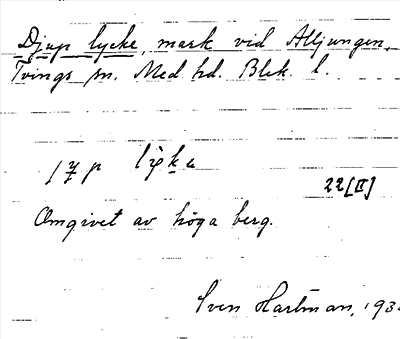 Djup lycke, mark vid Alljungen,
Tvings sn. Med hd. Blek. l.
22[II]
Omgivet av höga berg.
Sven Hartman, 193